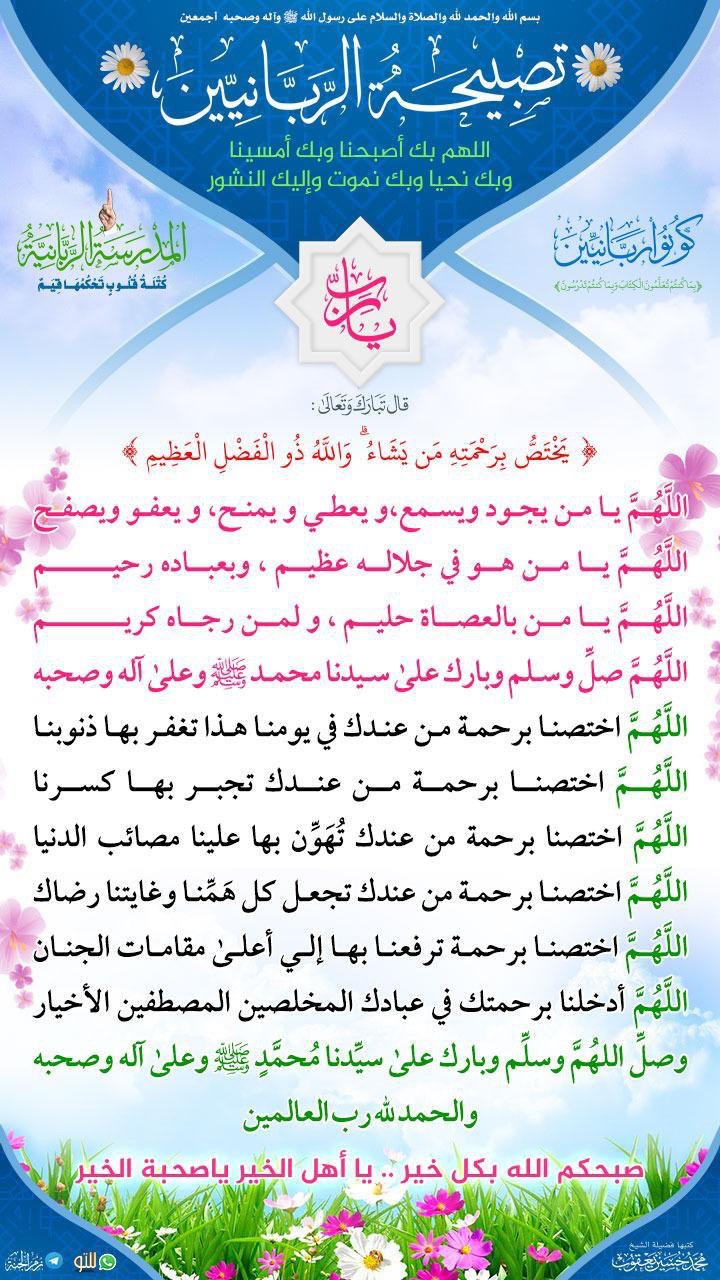 بسم الله والحمد لله والصلاة والسلام على رسول الله ﷺ وآله وصحبه أجمعين
تصبيحة الرَّبَّانِيِّين
اللهم بك أصبحنا وبك أمسينا
وبك نحيا وبك نموت وإليك النشور
كُونُوا رَبَّانِيِّينَ
﴿بِمَا كُنْتُمْ تُعَلِّمُونَ الْكِتَابَ وَبِمَا كُنْتُمْ تَدْرُسُونَ﴾
المَدْرَسَةُ الرَّبَّانِيَّةُ
كُتْلَةُ قُلُوبٍ تَحْكُمُهَا قِيَمٌ
يارب
قال تَبَارَكَ وَتَعَالَىٰ :
﴿ يَخْتَصُّ بِرَحْمَتِهِ مَن يَشَاءُ ۗ وَاللَّهُ ذُو الْفَضْلِ الْعَظِيمِ ﴾
اللَّهُمَّ يا من يجود ويسمع،و يعطي و يمنح، و يعفو ويصفح
اللَّهُمَّ يا من هو في جلاله عظيم ، وبعباده رحيم
اللَّهُمَّ يا من بالعصاة حليم ، و لمن رجاه كريم
اللَّهُمَّ صلِّ وسلم وبارك علىٰ سيدنا محمد ﷺ وعلىٰ آله وصحبه
اللَّهُمَّ اختصنا برحمة من عندك في يومنا هذا تغفر بها ذنوبنا
اللَّهُمَّ اختصنا برحمة من عندك تجبر بها كسرنا
اللَّهُمَّ اختصنا برحمة من عندك تُهَوِّن بها علينا مصائب الدنيا
اللَّهُمَّ اختصنا برحمة من عندك تجعل كل هَمِّنا وغايتنا رضاك
اللَّهُمَّ اختصنا برحمة ترفعنا بها إلي أعلىٰ مقامات الجنان
اللَّهُمَّ أدخلنا برحمتك في عبادك المخلصين المصطفين الأخيار
وصلِّ اللهُمَّ وسلِّم وبارك علىٰ سيِّدنا مُحمَّدٍ ﷺ وعلىٰ آله وصحبه
والحمد لله رب العالمين
صبحكم الله بكل خير .. يا أهل الخير ياصحبة الخير
كتبها فضيلة الشيخ
محمد حسين يعقوب
للتو
زمر الجنة